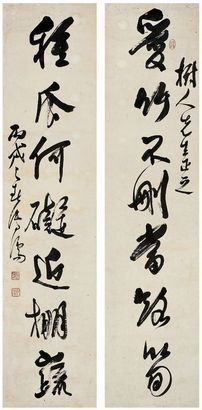 樹人先生正之
愛竹不刪當路筍
種瓜何礙近棚蔬
丙戌